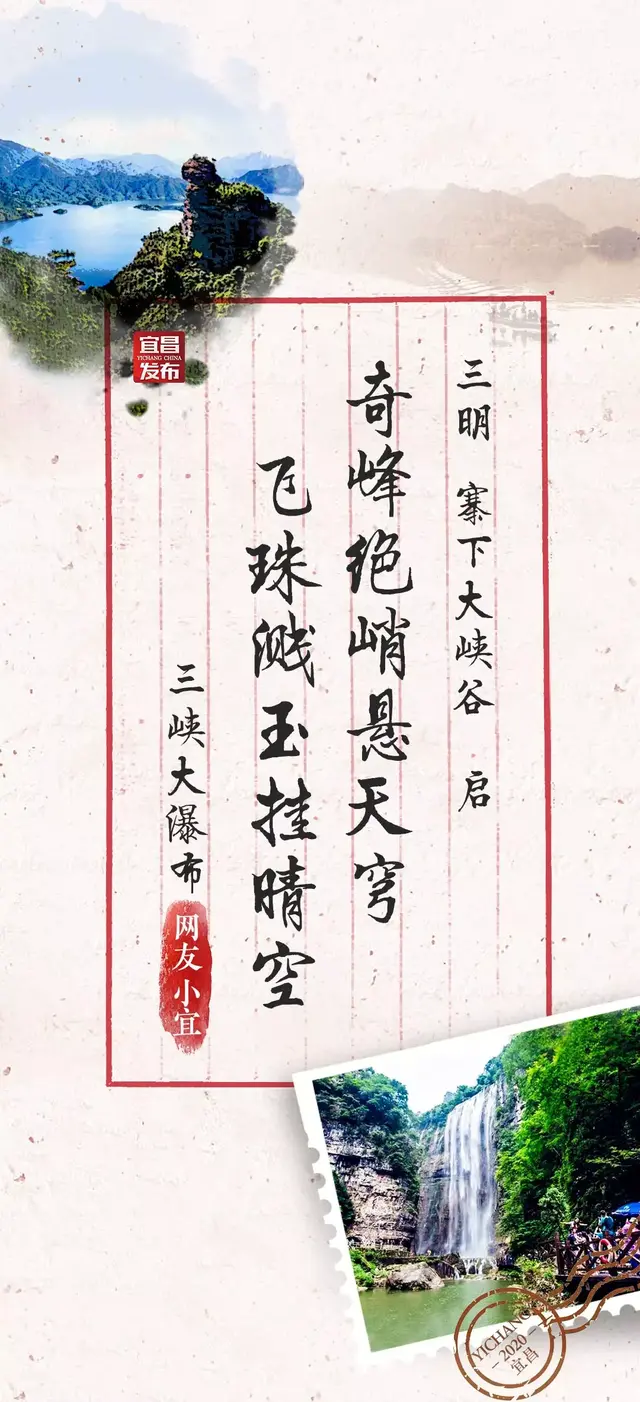 宜昌
YICHANG CHINA
发布
三明 寨下大峡谷 启
奇峰绝峭悬天穹
飞珠溅玉挂晴空
三峡大瀑布
网友小宜
YICHANG
2020
宜昌